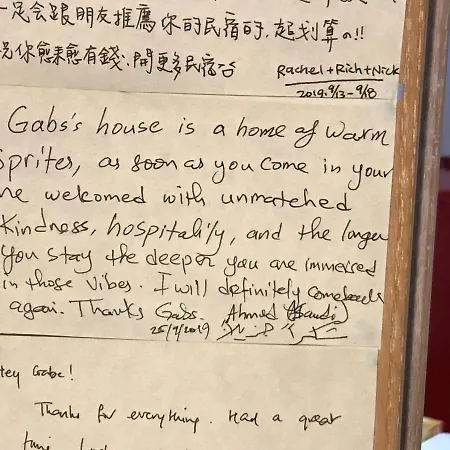 一定会跟朋友推薦你的民宿的,超划算の!!
祝你愈來愈有錢、開更多民宿
Rachel+Rich+Nick
2019.9/13-9/18
Gabs's house is a home of warm
Sprites, as soon as you come in your
welcomed with unmatched
Kindness, hospitality, and the longer
You stay the deeper you are immersed
in those vibes. I will definitely comeback
again. Thanks Gabs. Ahmed
25/7/2019
Hey Gabe!
Thanks for everything. Had a great
time